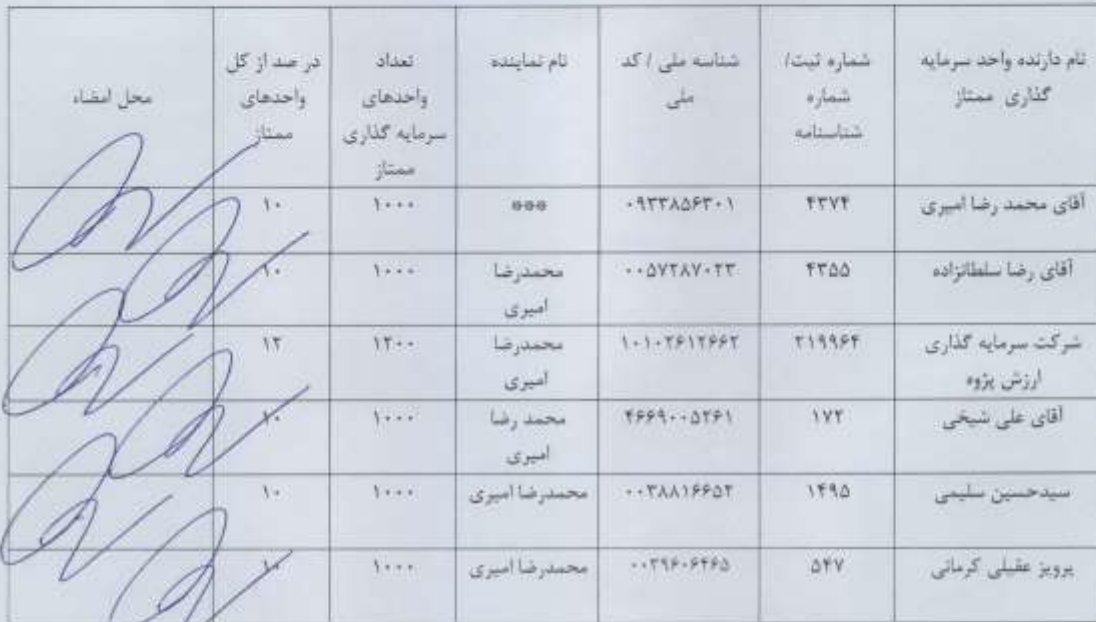 نام دارنده واحد سرمایه گذاری ممتاز	شماره ثبت/ شماره شناسنامه	شناسه ملی / کد ملی	نام نماینده	تعداد واحدهای سرمایه گذاری ممتاز	در صد از کل واحدهای ممتاز	محل امضاء
آقای محمد رضا امیری	۴۳۷۴	۰۹۳۳۸۵۶۳۰۱	***	۱۰۰۰	۱۰
آقای رضا سلطانزاده	۴۳۵۵	محمدرضا امیری	۱۰۰۰	۱۰
شرکت سرمایه گذاری ارزش پژوه	۲۱۹۹۶۴	۱۰۱۰۲۶۱۲۶۶۲	محمدرضا امیری	۱۲۰۰	۱۲
آقای علی شیخی	۱۷۲	۴۶۶۹۰۰۵۲۶۱	محمد رضا امیری	۱۰۰۰	۱۰
سیدحسین سلیمی	۱۴۹۵	۰۰۳۸۸۱۶۶۵۲	محمدرضا امیری	۱۰۰۰	۱۰
پرویز عقیلی کرمانی	۵۴۷	محمدرضا امیری	۱۰۰۰	۱۰